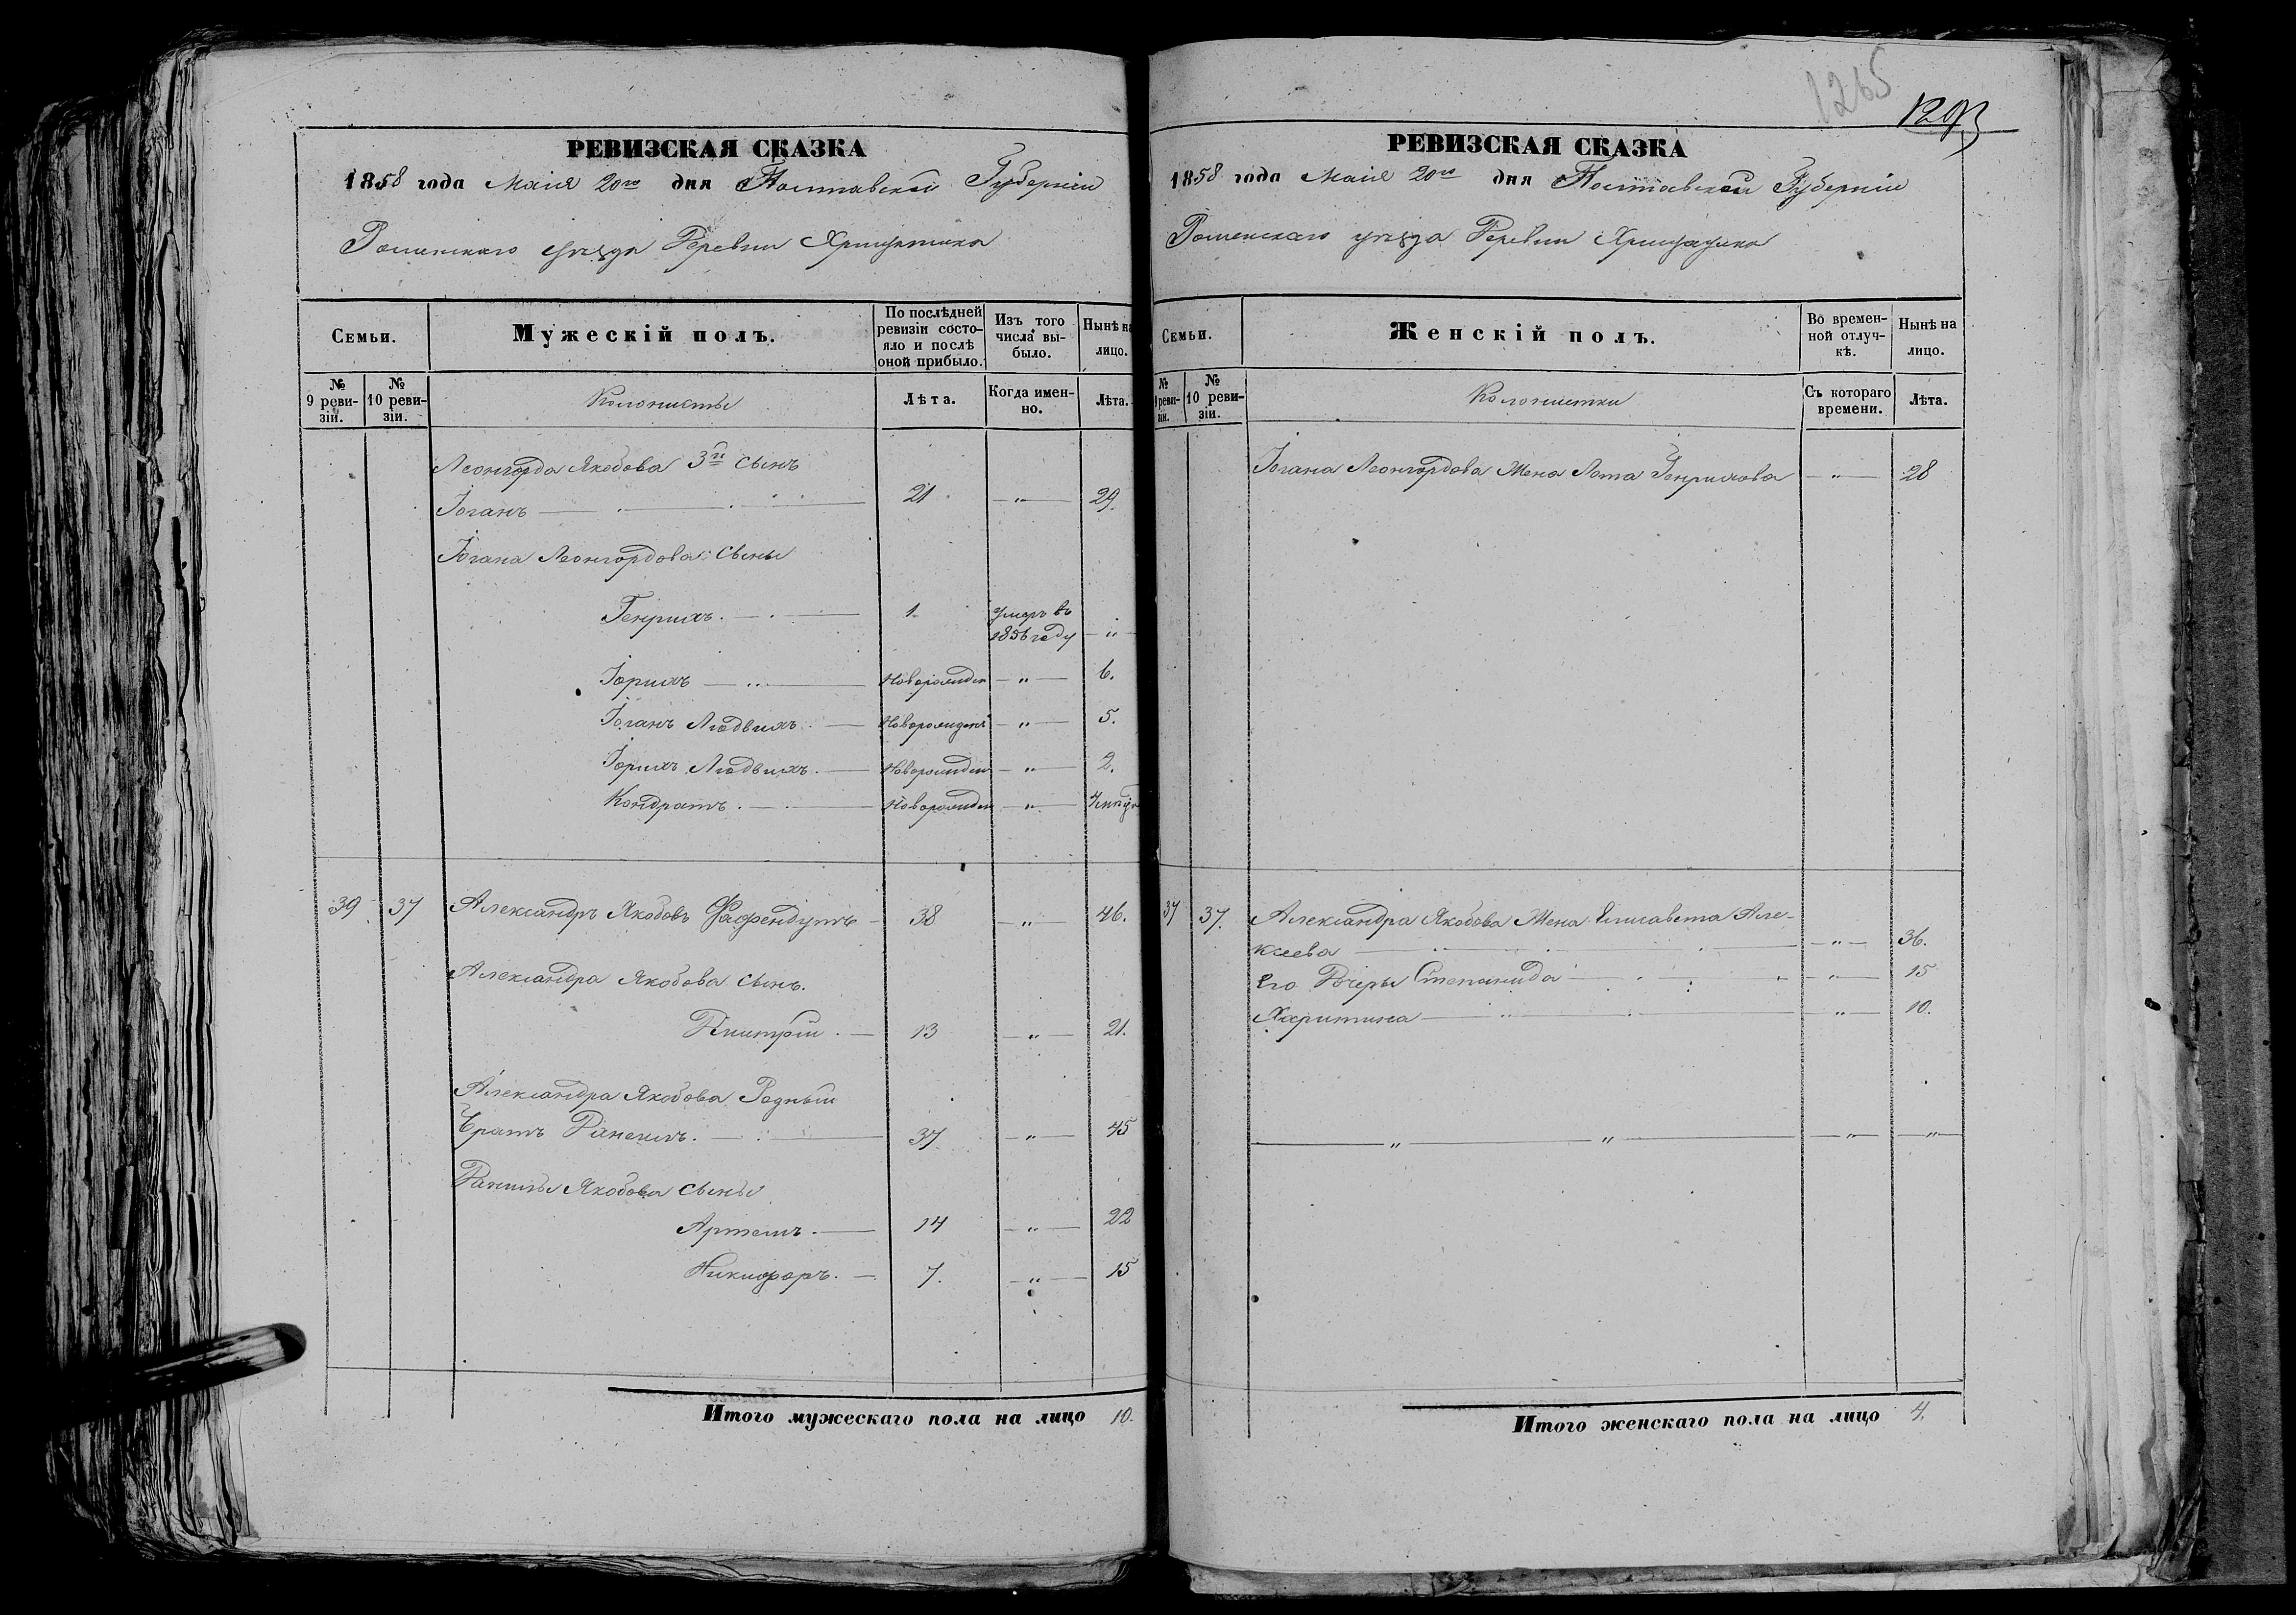 1265
1293
РЕВИЗСКАЯ СКАЗКА
1858 года Маія 20го дня Полтавской Губерніи
Роменскаго уѣзда Деревни
Семьи.
Мужескій полъ.
По послѣдней ревизіи состояло и послѣ оной прибыло.
Изъ того числа выбыло.
Нынѣ на лицо.
№ 9 ревизіи.
№ 10 ревизіи.
Колонисты
Лѣта.
Когда именно.
Лѣта.
Леонгорда Якобова 3й сынъ
Іоганъ — 21 — „ — 29.
Іогана Леонгордова сыны
Генрихъ. — 1. умеръ въ 1856 году — „
Іорихъ — Новорожден — „ — 6.
Іоганъ Людвихъ. — Новорожденъ — „ — 5.
Іорихъ Людвихъ. — Новорожден — „ — 2.
Кондратъ. — Новорожден — „ —
39 37 Александръ Якобовъ — 38 — „ — 46.
Александра Якобова сынъ.
Дмитрій. — 13 — „ — 21.
Александра Якобова Родный
Братъ Данеилъ. — 37 — „ — 45
Данилы Якобова сыны
Артемъ. — 14 — „ — 22
Никифоръ. — 7. — „ — 15
Итого мужескаго пола на лицо 10.
РЕВИЗСКАЯ СКАЗКА
1858 года Маія 20го дня Полтавской Губерніи
Роменскаго уѣзда Деревни
Семьи.
Женскій полъ.
Во временной отлучкѣ.
Нынѣ на лицо.
№ 9 ревизіи.
№ 10 ревизіи.
Колонистки
Съ котораго времени.
Лѣта.
Іогана Леонгордова Жена Лота Генрихова — „ — 28
37 37. Александра Якобова Жена Елисавета Але-
ксеева — „ — 36.
Его Дочеры Степанида — „ — 15
Харитина — „ — 10.
— „ — „ — „ — „ —
Итого женскаго пола на лицо 4.